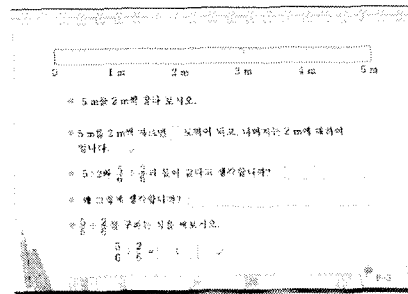 0 1 m 2 m 3 m 4 m 5 m
5 m를 2 m씩 잘라 보시오.
5 m를 2 m씩 자르면 도막이 되고, 나머지는 2 m에 대하여
입니다.
5÷2와 의 몫이 같다고 생각합니까?
왜 그렇게 생각합니까?
÷ 를 구하는 식을 써보시오.